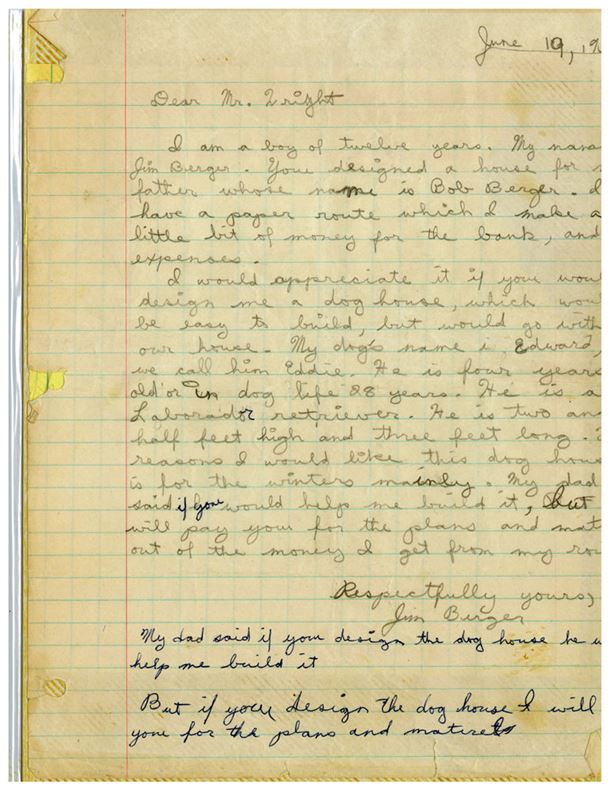 June 19, 19
Dear Mr. Wright
I am a boy of twelve years. My name
Jim Berger. You designed a house for
father whose name is Bob Berger. I
have a paper route which I make a
little bit of money for the bank, and
expenses.
I would appreciate it if you would
design me a dog house, which would
be easy to build, but would go with
our house. My dog's name i Edward,
we call him Eddie. He is four years
old or in dog life 28 years. He is a
Laborador retriever. He is two and
half feet high and three feet long.
reasons I would like this dog house
is for the winters mainly. My dad
said if you would help me build it, but
will pay you for the plans and mat
out of the money I get from my rou
Respectfully yours,
Jim Berger
My dad said if you design the dog house he w
help me build it
But if you design the dog house I will
you for the plans and materels